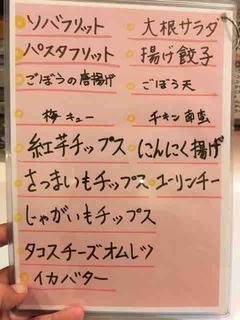 ソバフリット 大根サラダ
パスタフリット 揚げ餃子
ごぼうの唐揚げ ごぼう天
梅キュー チキン南蛮
紅芋チップス にんにく揚げ
さつまいもチップス ユーリンチー
じゃがいもチップス
タコスチーズオムレツ
イカバター